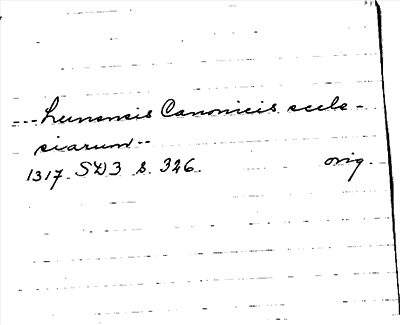 --- Lunensis Canonicis eccle-
siarum --
1317. SD3 s. 326. orig.